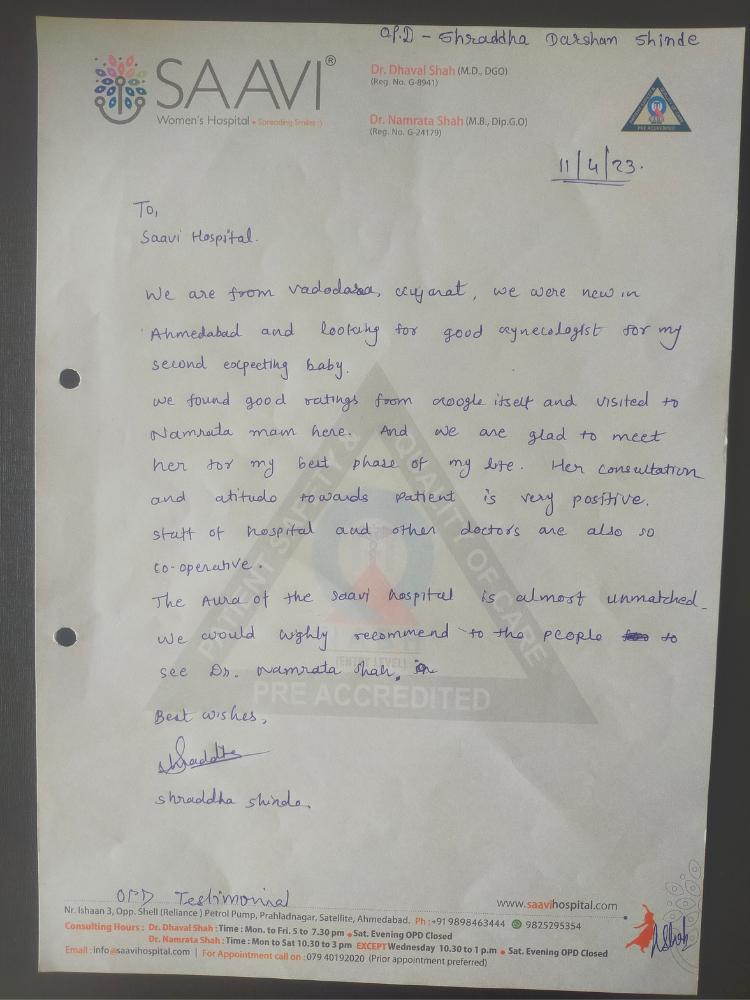 OPD - Shraddha Darshan Shinde
SAAVI®
Women's Hospital • Spreading Smiles :)
Dr. Dhaval Shah (M.D., DGO)
(Reg. No. G-8941)
Dr. Namrata Shah (M.B., Dip.G.O)
(Reg. No. G-24179)
PRE ACCREDITED
11/4/23.
To,
Saavi Hospital.
We are from Vadodara, Gujarat, we were new in
Ahmedabad and looking for good Gynecologist for my
second expecting baby.
We found good ratings from Google itself and visited to
Namrata mam here. And we are glad to meet
her for my best phase of my life. Her consultation
and atitude towards patient is very positive.
staff of hospital and other doctors are also so
co-operative.
The Aura of the Saavi hospital is almost unmatched.
We would highly recommend to the people to
see Dr. Namrata Shah.
PATIENT SAFETY & QUALITY OF CARE
(ENTRY LEVEL)
PRE ACCREDITED
Best wishes,
Shraddha
Shraddha Shinde.
OPD Testimonial
www.saavihospital.com
Nr. Ishaan 3, Opp. Shell (Reliance) Petrol Pump, Prahladnagar, Satellite, Ahmedabad. Ph :+91 9898463444 9825295354
Consulting Hours : Dr. Dhaval Shah :Time : Mon. to Fri. 5 to 7.30 pm • Sat. Evening OPD Closed
Dr. Namrata Shah : Time : Mon to Sat 10.30 to 3 pm EXCEPT Wednesday 10.30 to 1 p.m • Sat. Evening OPD Closed
Email : info@saavihospital.com | For Appointment call on : 079 40192020 (Prior appointment preferred)